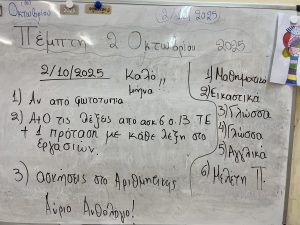 1 Οκτωβρίου
2/10/2025
Πέμπτη 2 Οκτωβρίου 2025
2/10/2025 Καλό μήνα!!
1) Αν από φωτοτυπία
2) Α+Ο τις λέξεις από ασκ 6 σ.13 ΤΕ
+ 1 πρόταση με κάθε λέξη στο
εργασιών.
3) ασκήσεις στο Αριθμητικής
Αύριο Ανθολόγιο!
1) Μαθηματικά
2) Εικαστικά
3) Γλώσσα
4) Γλώσσα
5) Αγγλικά
6) Μελέτη Π.